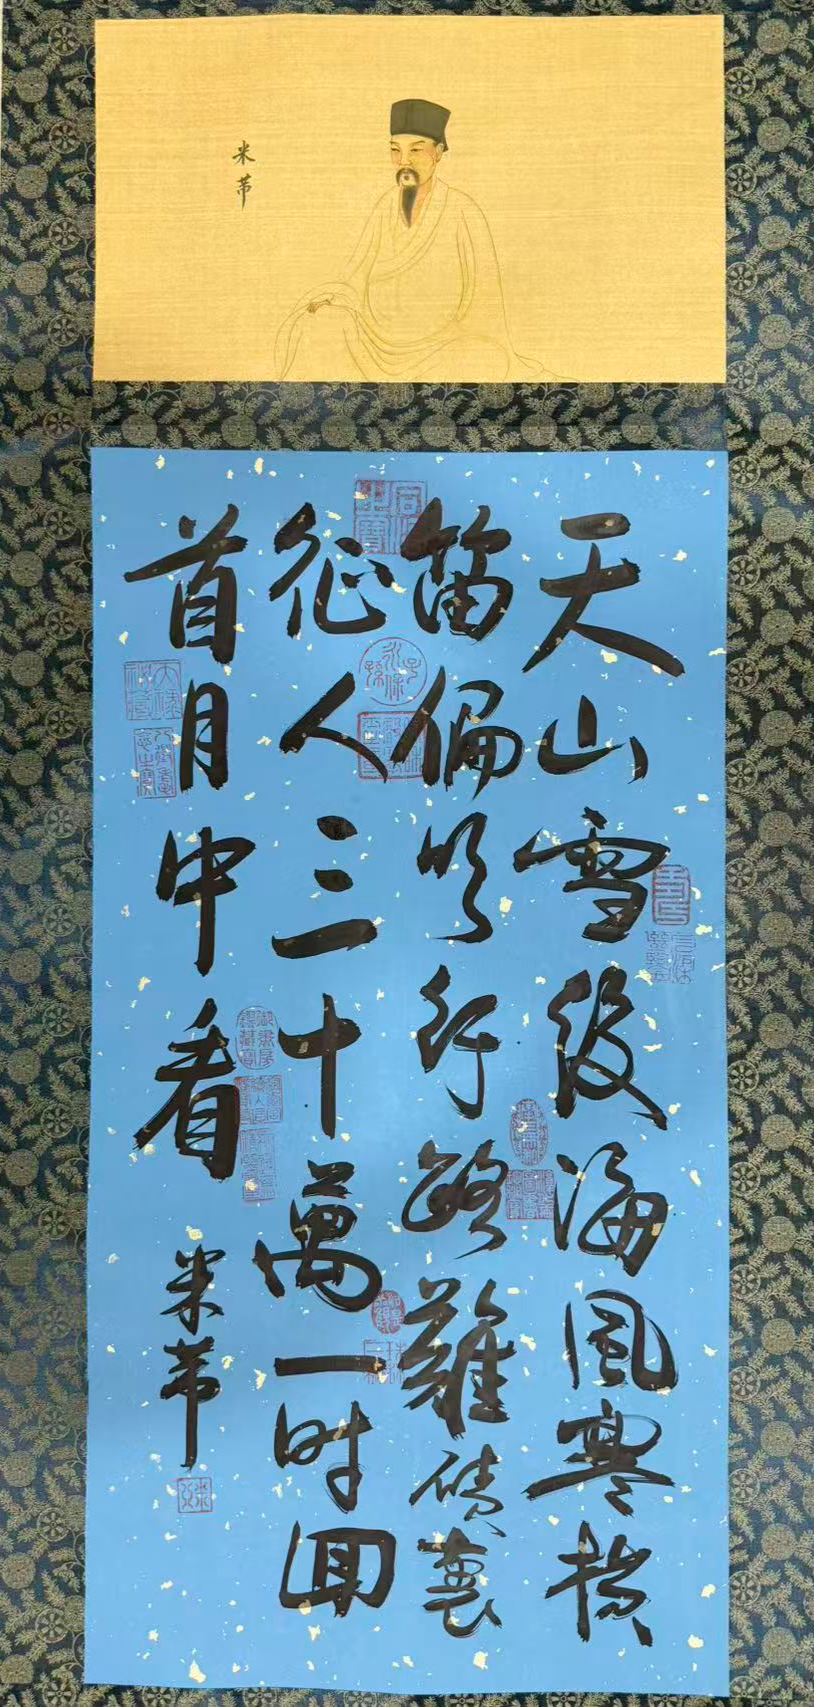 米芾
天山雪後海風寒横
笛偏吹行路難磧裏
征人三十萬一时回
首月中看
米芾